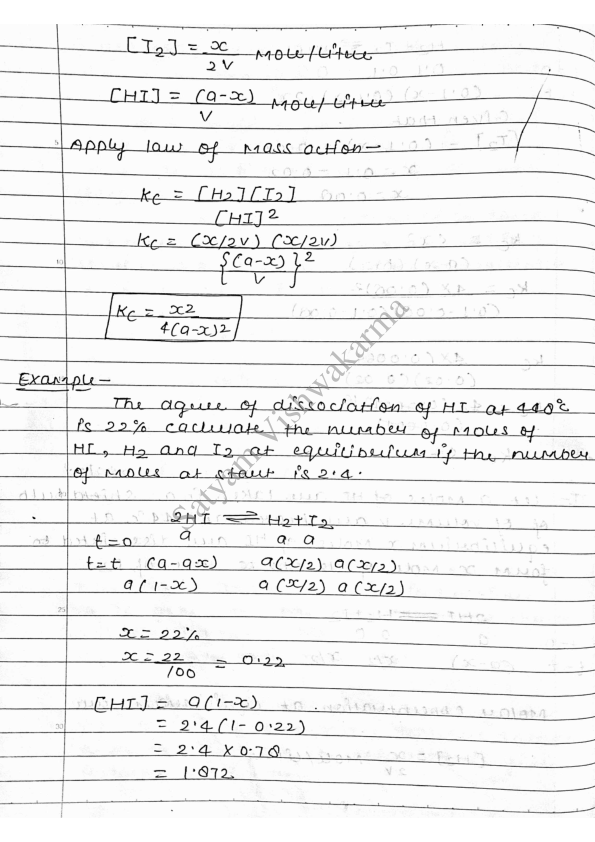 [I2] = x/2V Mole/Litre
[HI] = (a-x)/V Mole/Litre
Apply law of Mass action-
Kc = [H2][I2]/[HI]2
Kc = (x/2V) (x/2V)/{(a-x)/V}2
Kc = x2/4(a-x)2
Example-
The agree of dissociation of HI at 440°c
is 22% caclulate the number of moles of
HI, H2 and I2 at equilibrium if the number
of moles at start is 2.4.
2HI ⇌ H2+I2
t=0 a a a
t=t (a-ax) a(x/2) a(x/2)
a(1-x) a(x/2) a(x/2)
x = 22%
x = 22/100 = 0.22
[HI] = a(1-x)
= 2.4(1-0.22)
= 2.4 x 0.78
= 1.872
Satyam Vishwakarma